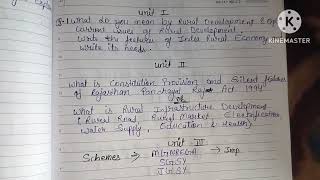 unit I
Q.1 What do you mean by Rural Development & Exp
current issues of Rural Development.
Write the features of Indian Rural Economy
write its needs.
unit II
What is Constitution Provision and Silent features
of Rajasthan Panchayat Raj Act 1994
OR
What is Rural Infrastructure Development
(Rural Road, Rural Market, Electrification,
Water Supply, Education & Health)
unit III
Schemes → MGNREGA → Imp
SGSY
JGSY
KINEMASTER